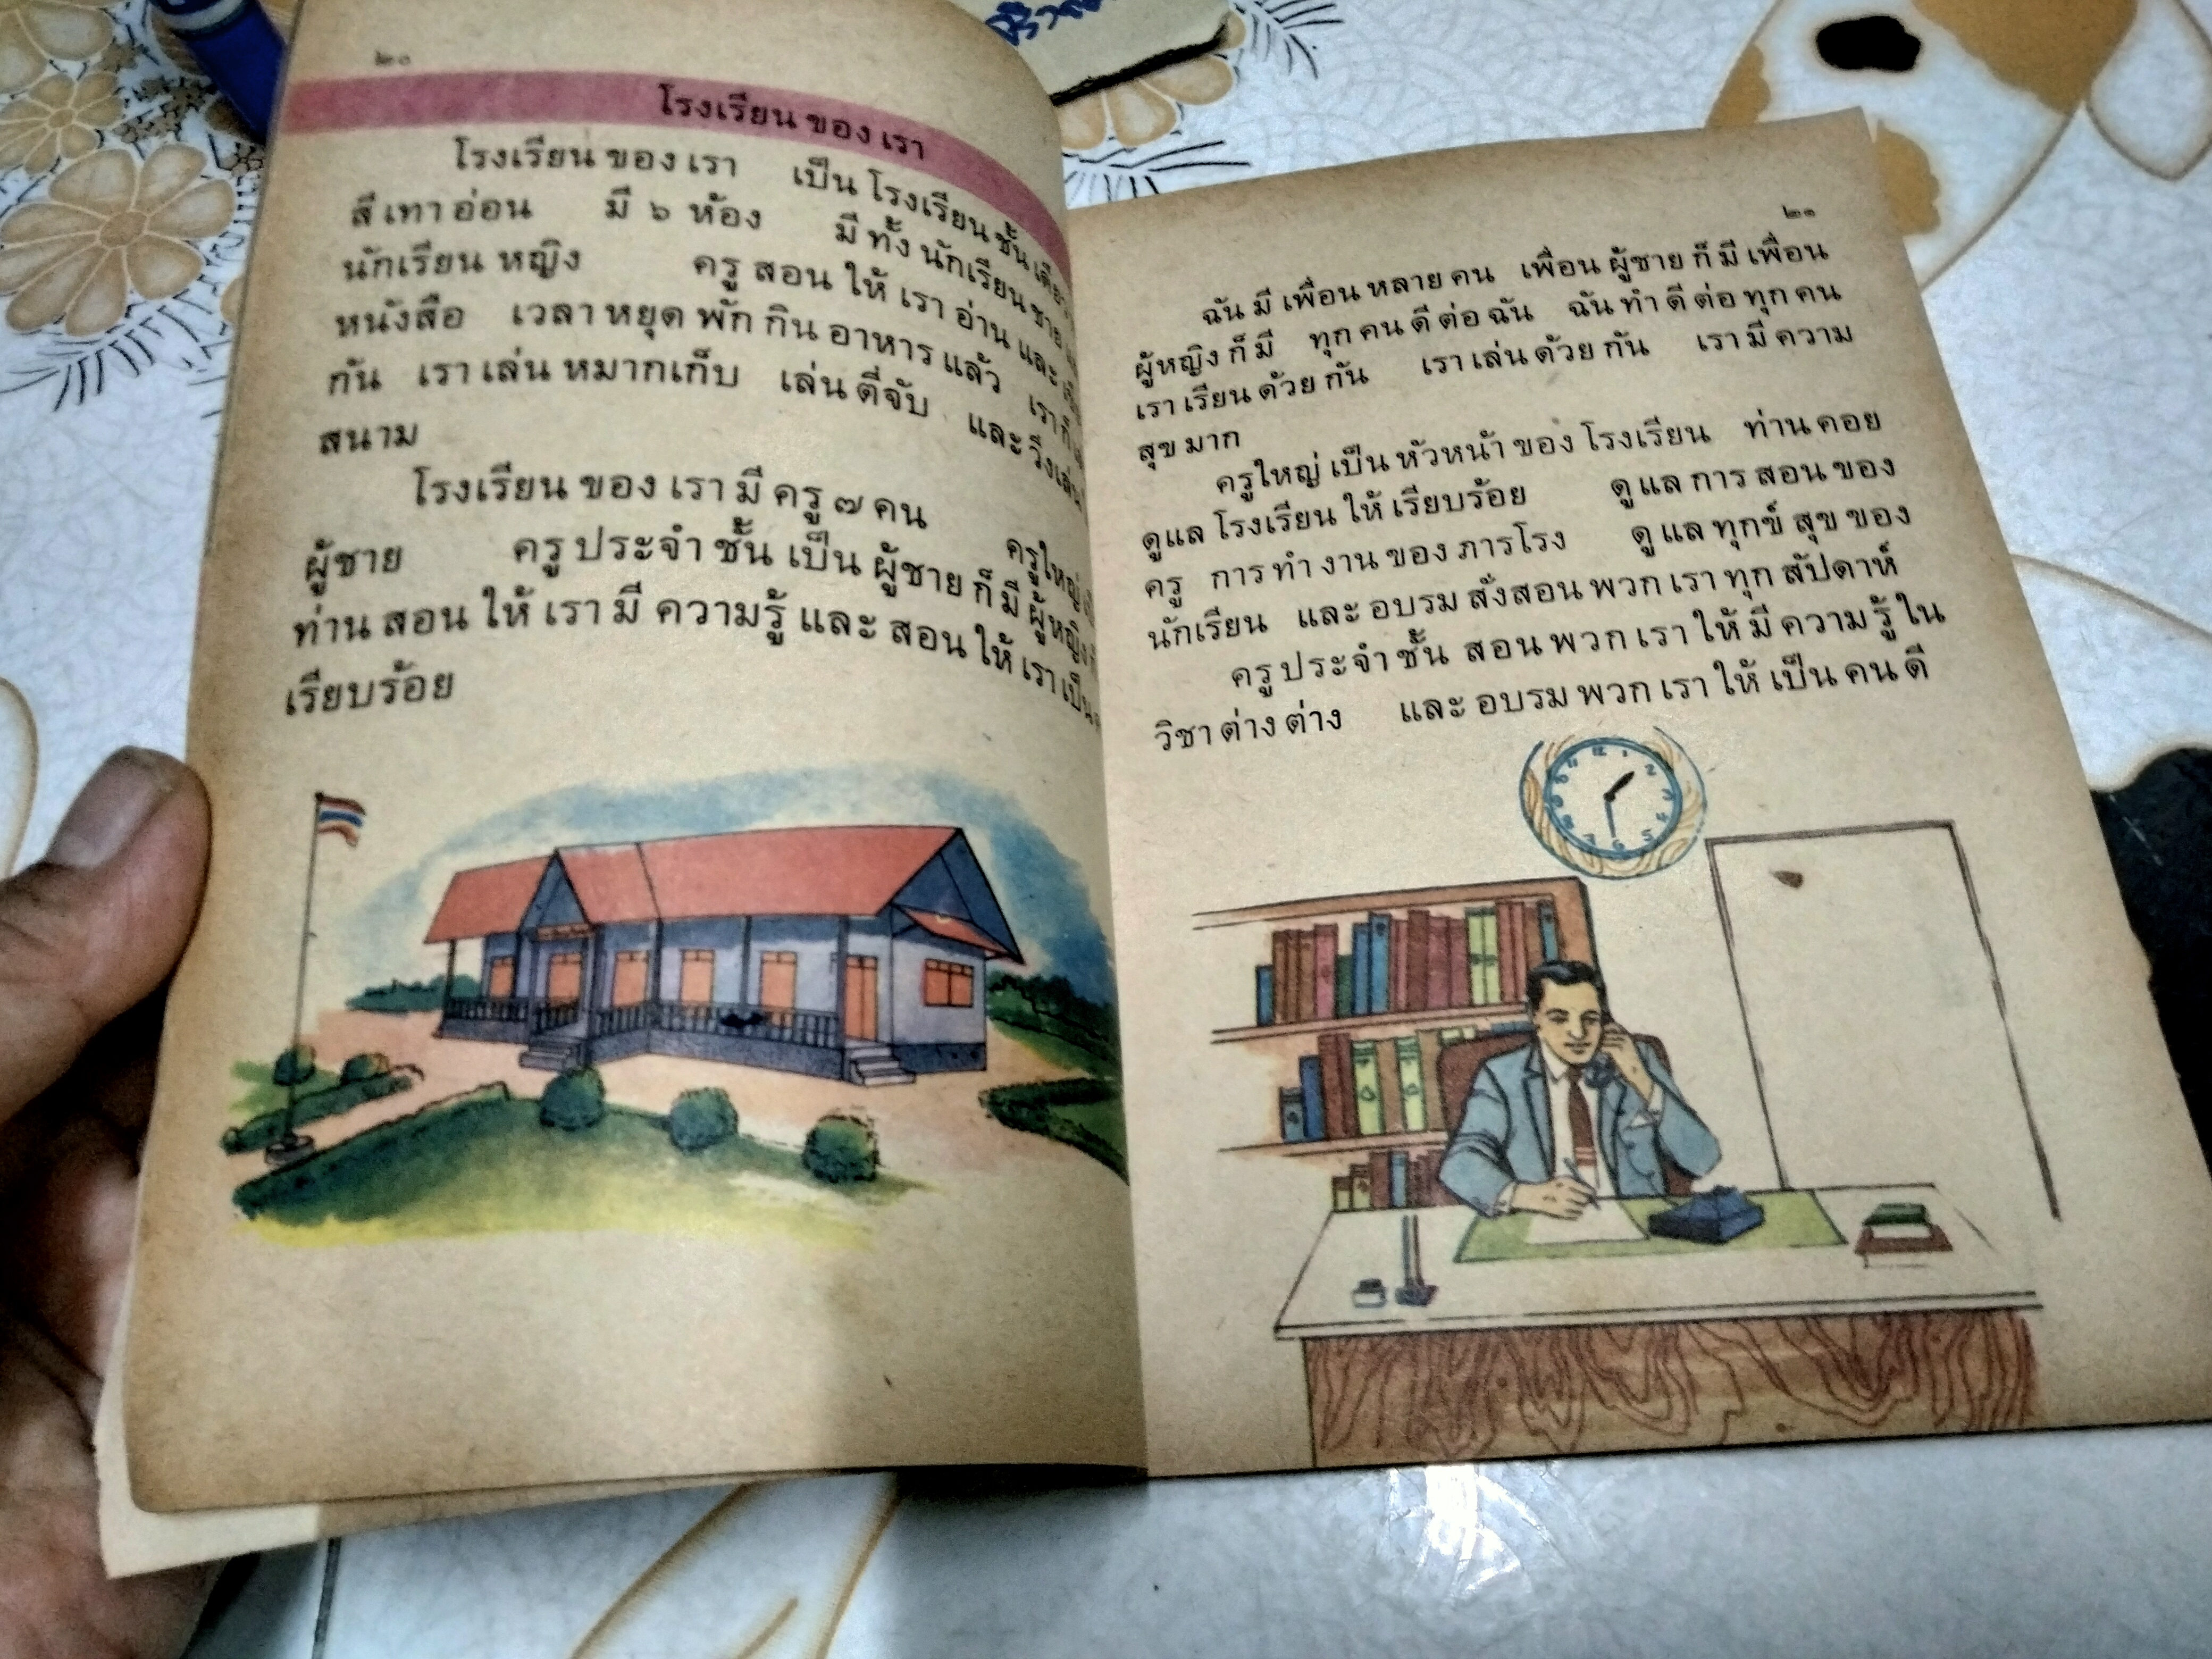 ๒๐
โรงเรียน ของ เรา
โรงเรียน ของ เรา เป็น โรงเรียน ชั้น เดียว
สี เทา อ่อน มี ๖ ห้อง มี ทั้ง นักเรียน ชาย
นักเรียน หญิง ครู สอน ให้ เรา อ่าน และ
หนังสือ เวลา หยุด พัก กิน อาหาร แล้ว เรา ก็
กัน เรา เล่น หมากเก็บ เล่น ตี่จับ และ วิ่งเล่น
สนาม
โรงเรียน ของ เรา มี ครู ๗ คน ครูใหญ่
ผู้ชาย ครู ประจำ ชั้น เป็น ผู้ชาย ก็ มี ผู้หญิง
ท่าน สอน ให้ เรา มี ความรู้ และ สอน ให้ เรา เป็น
เรียบร้อย
๒๑
ฉัน มี เพื่อน หลาย คน เพื่อน ผู้ชาย ก็ มี เพื่อน
ผู้หญิง ก็ มี ทุก คน ดี ต่อ ฉัน ฉัน ทำ ดี ต่อ ทุก คน
เรา เรียน ด้วย กัน เรา เล่น ด้วย กัน เรา มี ความ
สุข มาก
ครูใหญ่ เป็น หัวหน้า ของ โรงเรียน ท่าน คอย
ดูแล โรงเรียน ให้ เรียบร้อย ดู แล การ สอน ของ
ครู การ ทำ งาน ของ ภารโรง ดู แล ทุกข์ สุข ของ
นักเรียน และ อบรม สั่งสอน พวก เรา ทุก สัปดาห์
ครู ประจำ ชั้น สอน พวก เรา ให้ มี ความ รู้ ใน
วิชา ต่าง ต่าง และ อบรม พวก เรา ให้ เป็น คน ดี